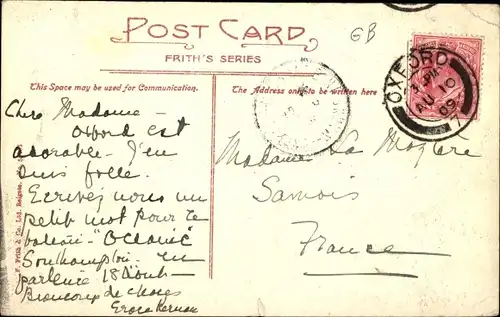 GB
POST CARD
FRITH'S SERIES
This Space may be used for Communication.
The Address only to be written here
OXFORD
3. PM
AU 10
09
7
Chère Madame –
Oxford est
adorable – J'en
suis folle.
Ecrivez nous un
petit mot pour le
bateau – "Oceanic"
Southampton – en
partence 18 Août –
Beaucoup de choses
Madame La
Samois
France
F. Frith & Co. Ltd. Reigate